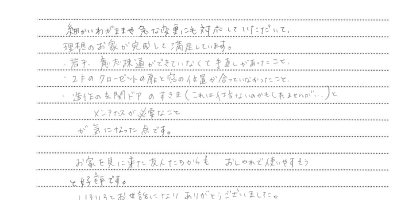 細かいわがままや急な変更にも対応していただいて、
理想のお家が完成して満足しています。
・若干、意思疎通ができていなくて手直しがあったこと、
・2Fのクローゼットの扉と窓の位置が合っていなかったこと、
・造作の玄関ドアのすきま(これは仕方ないのかもしれませんが…)と
メンテナンスが必要なこと
が気になった点です。
お家を見に来た友人たちからも おしゃれで使いやすそう
と好評です。
いろいろとお世話になりありがとうございました。